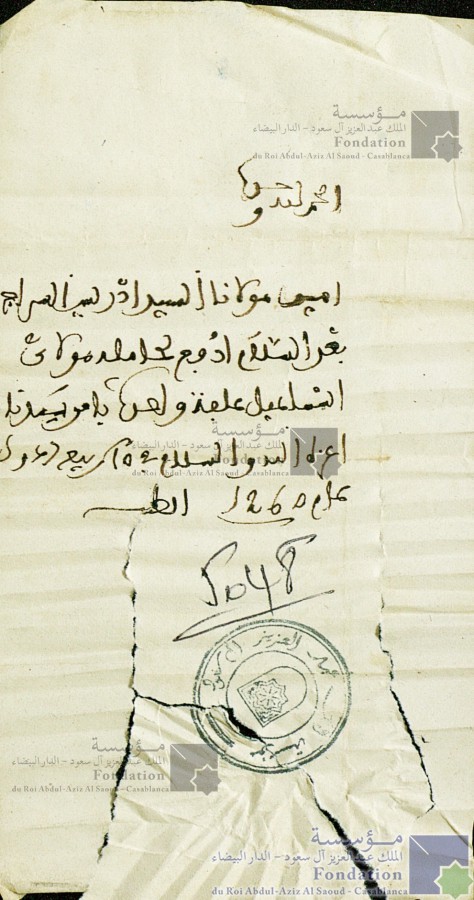 مؤسسة
الملك عبد العزيز آل سعود - الدار البيضاء
Fondation
du Roi Abdul-Aziz Al Saoud - Casablanca
الحمد لله وحده
امين مولانا السيد ادريس السراج
بعد السلام ادفع لحامله مولاي
اسماعيل علفة واحدة بامر سيدنا
اعزه الله والسلام في ربيع
عام 1260
مؤسسة
الملك عبد العزيز آل سعود - الدار البيضاء
Fondation
du Roi Abdul-Aziz Al Saoud - Casablanca
5048
عبد العزيز آل سعود
مؤسسة
الملك عبد العزيز آل سعود - الدار البيضاء
Fondation
du Roi Abdul-Aziz Al Saoud - Casablanca
مؤسسة
الملك عبد العزيز آل سعود - الدار البيضاء
Fondation
du Roi Abdul-Aziz Al Saoud - Casablanca